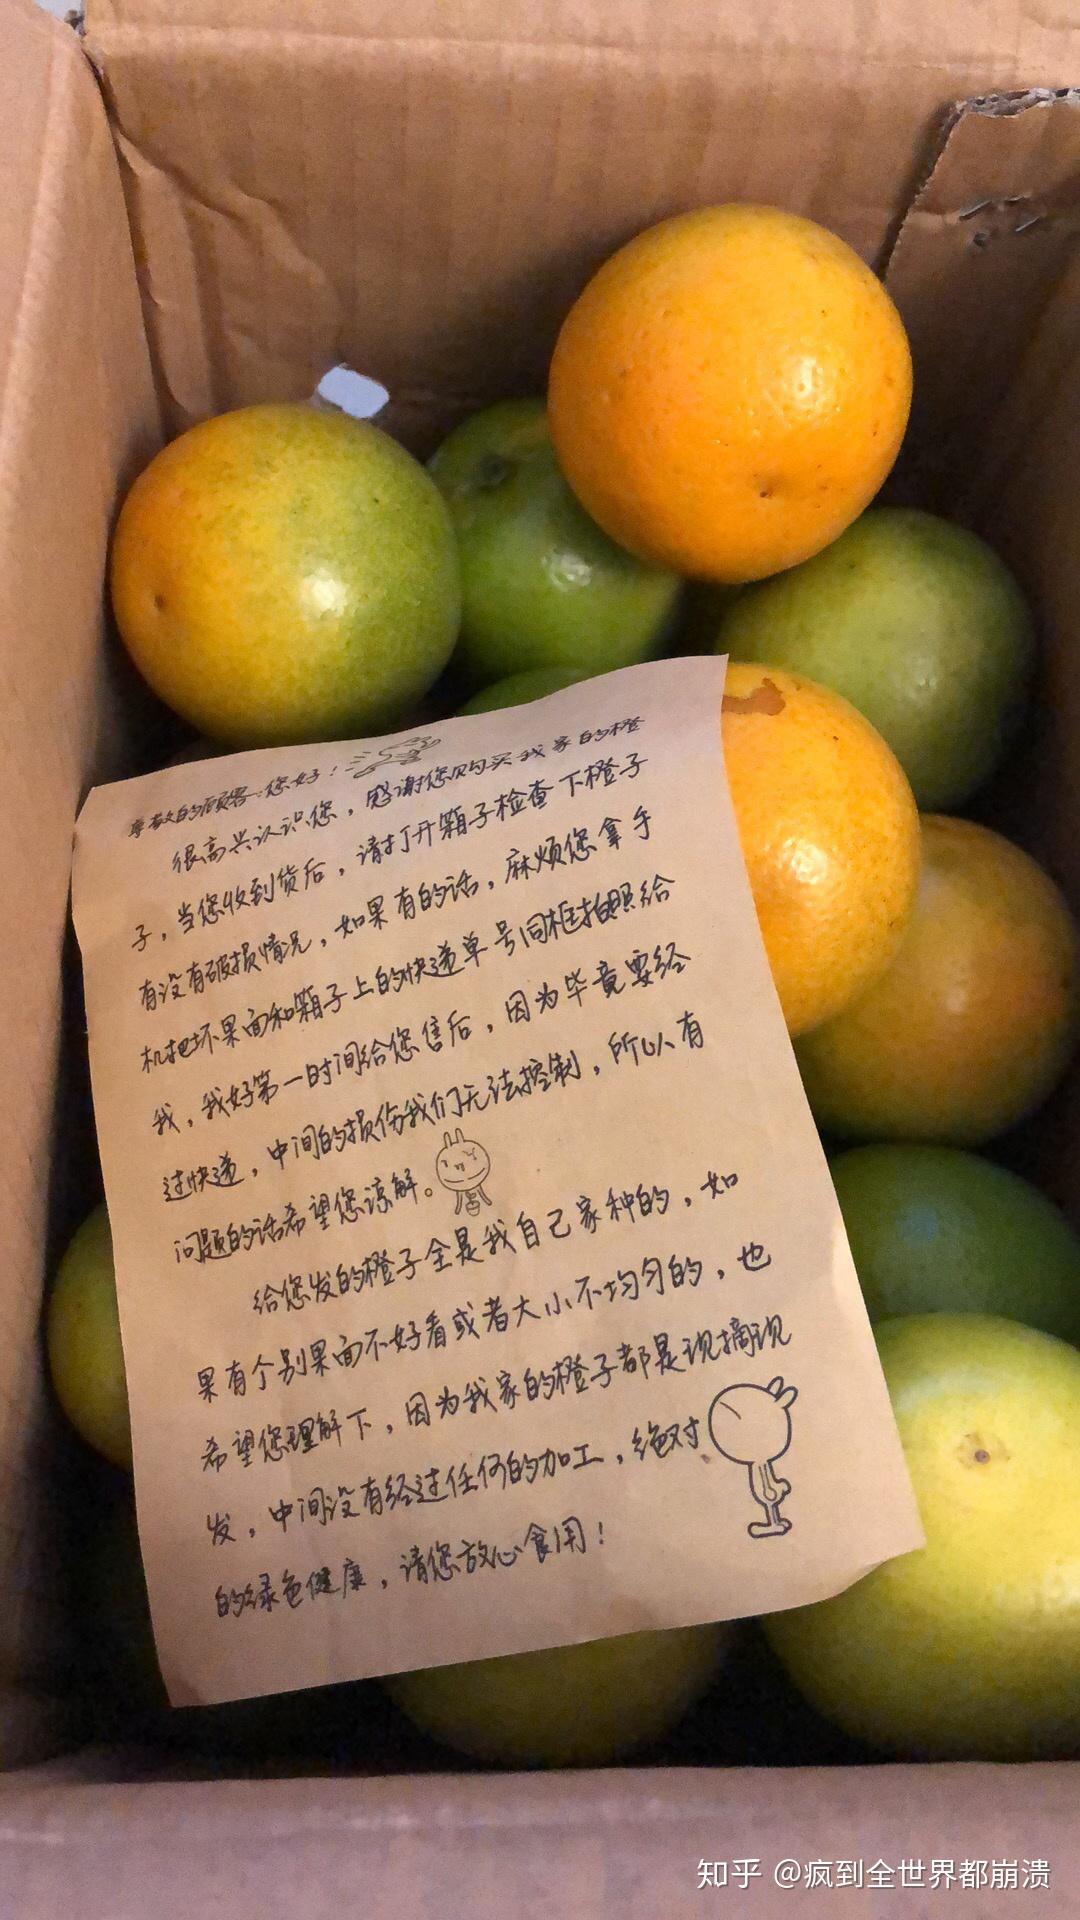 尊敬的顾客:您好!
很高兴认识您，感谢您购买我家的橙
子，当您收到货后，请打开箱子检查下橙子
有没有破损情况，如果有的话，麻烦您拿手
机把坏果面和箱子上的快递单号同框拍照给
我，我好第一时间给您售后，因为毕竟要经
过快递，中间的损伤我们无法控制，所以有
问题的话希望您谅解。
给您发的橙子全是我自己家种的，如
果有个别果面不好看或者大小不均匀的，也
希望您理解下，因为我家的橙子都是现摘现
发，中间没有经过任何的加工，绝对
的绿色健康，请您放心食用!
知乎 @疯到全世界都崩溃